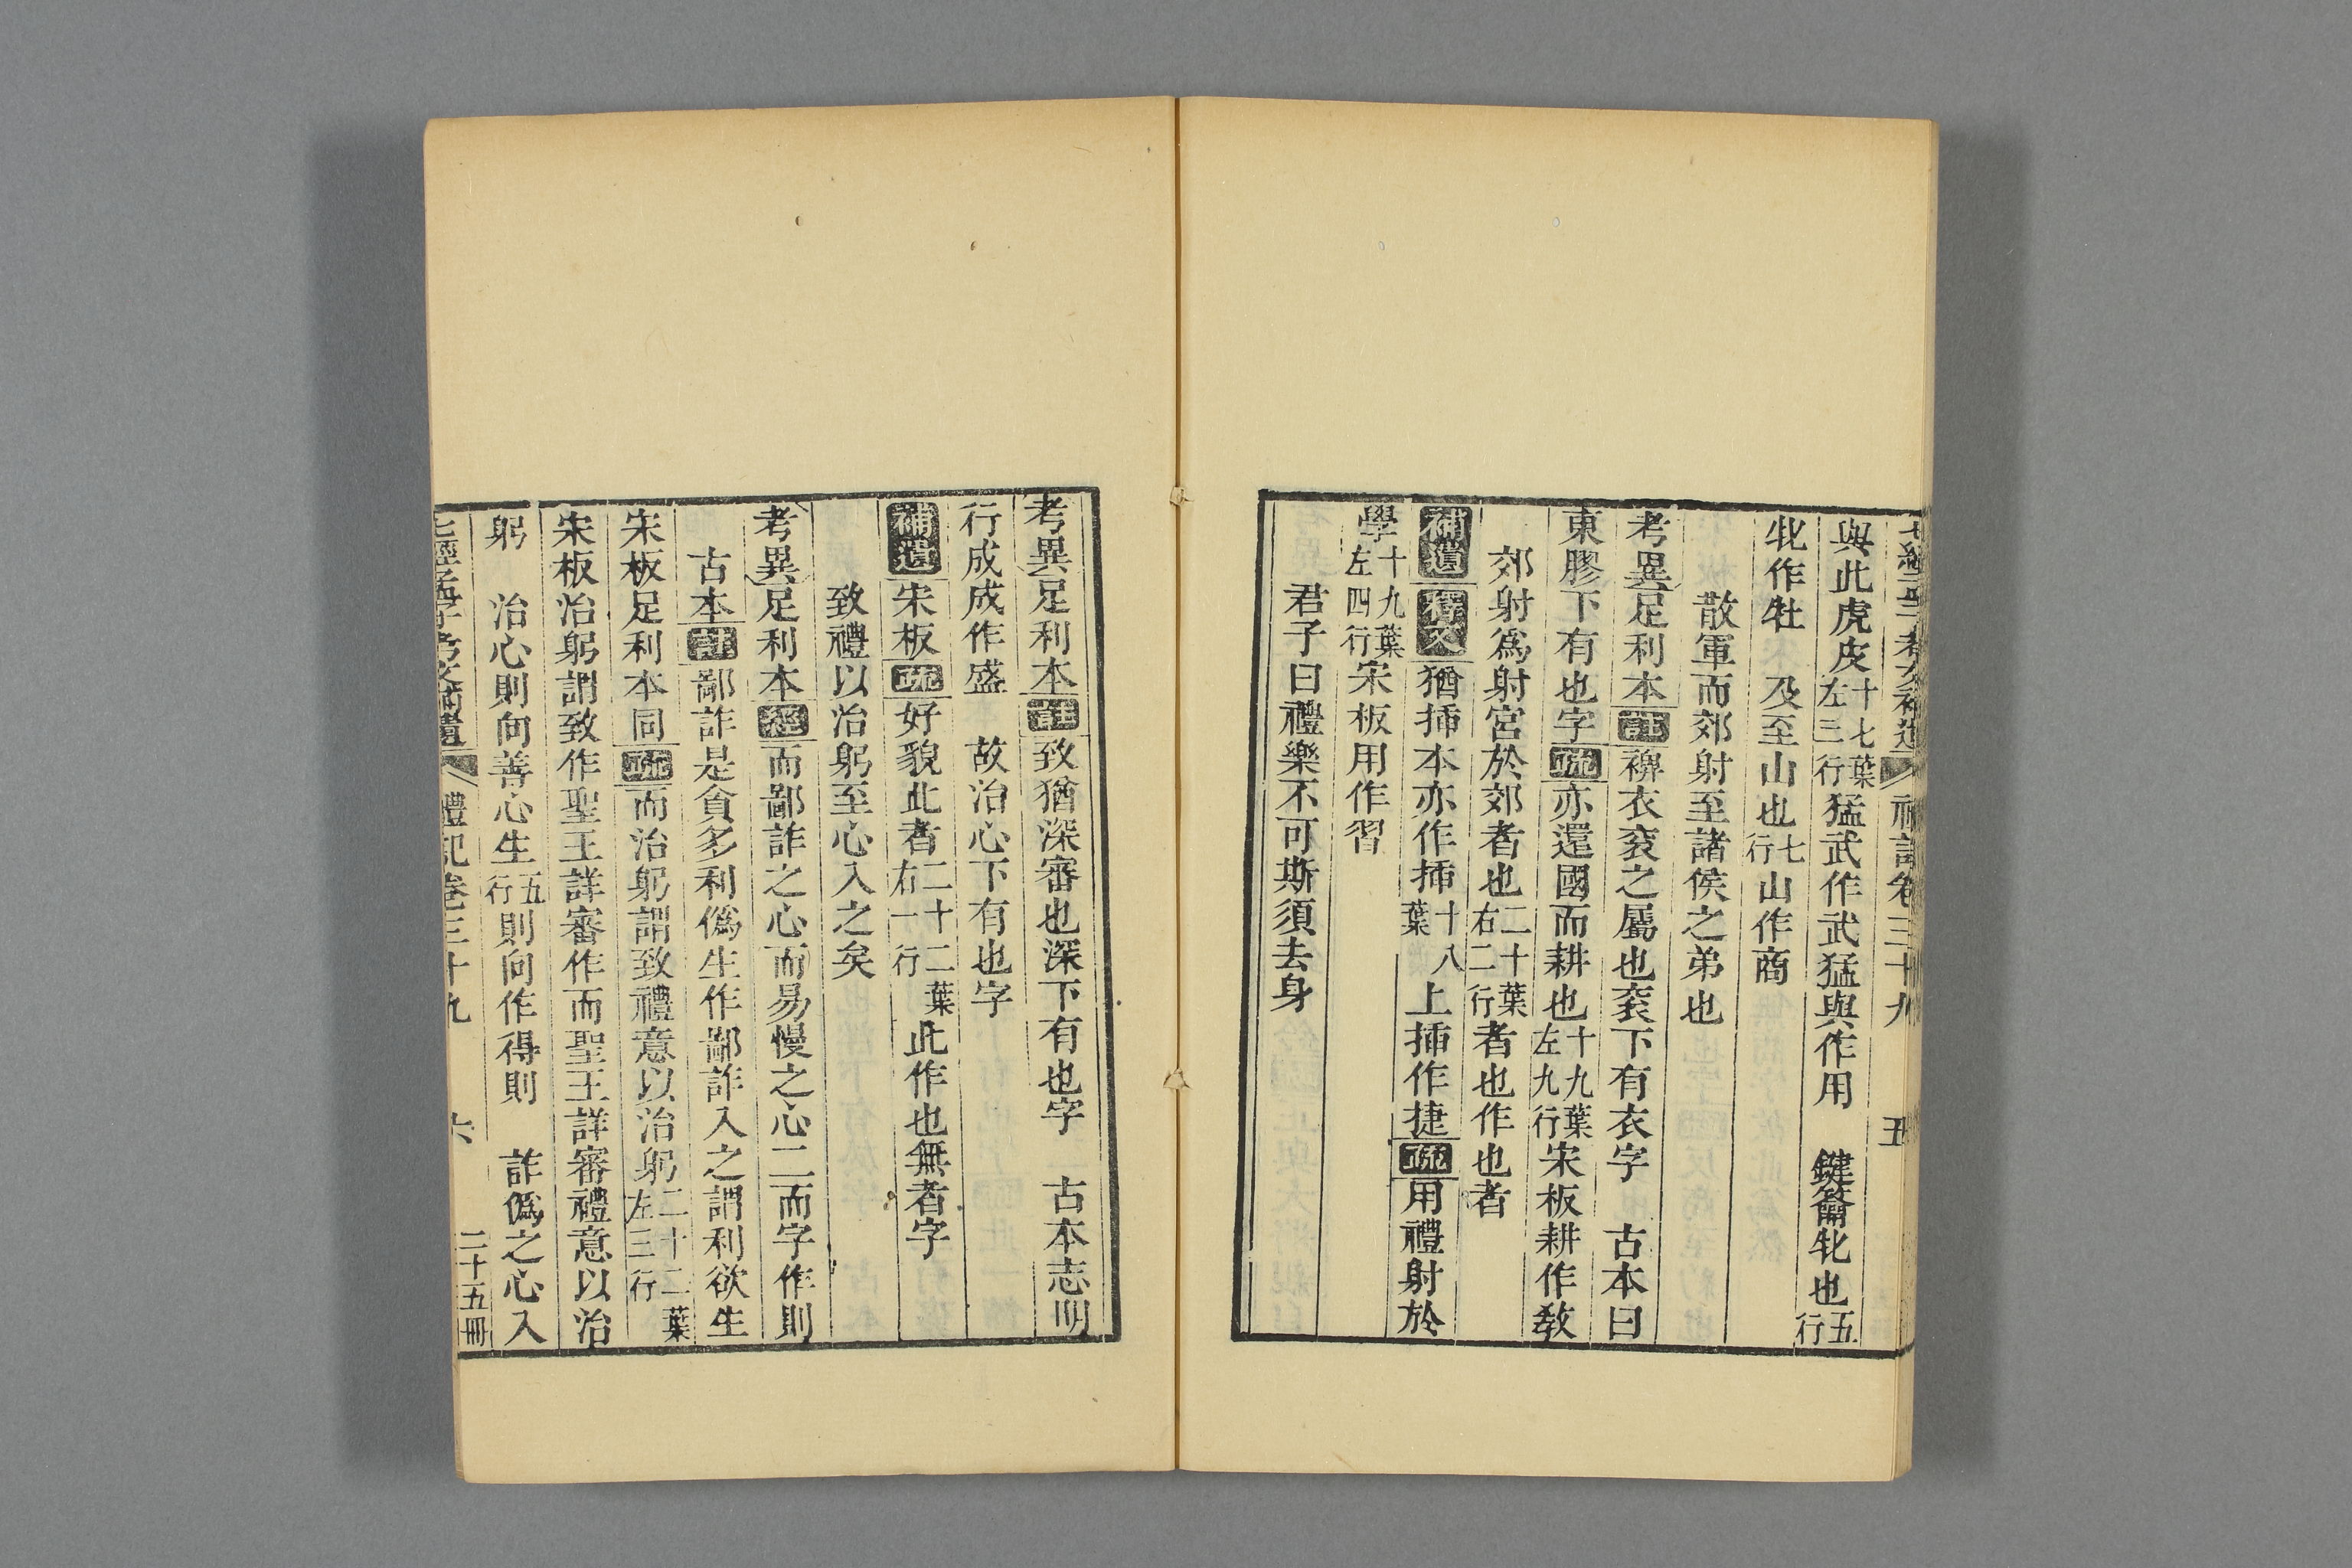 七經孟子考文補遺 禮記卷三十九 五
與此虎皮十七葉左三行猛武作武猛與作用 鍵籥牝也五行
牝作牡 及至山也七行山作商
散軍而郊射至諸侯之弟也
考異足利本註裨衣衮之屬也衮下有衣字 古本曰
東膠下有也字疏亦還國而耕也十九葉左九行宋板耕作教
郊射爲射宮於郊者也二十葉右二行者也作也者
補遺釋文猶揷本亦作揷十八葉上揷作捷疏用禮射於
學十九葉左四行宋板用作習
君子曰禮樂不可斯須去身
考異足利本註致猶深審也深下有也字 古本志明
行成成作盛 故治心下有也字
補遺宋板疏好貌此者二十二葉右一行此作也無者字
致禮以治躬至心入之矣
考異足利本經而鄙詐之心而易慢之心二而字作則
古本註鄙詐是貪多利僞生作鄙詐入之謂利欲生
宋板足利本同疏而治躬謂致禮意以治躬二十二葉左三行
宋板治躬謂致作聖王詳審作而聖王詳審禮意以治
躬 治心則向善心生五行則向作得則 詐僞之心入
七經孟子考文補遺 禮記卷三十九 六 二十五冊